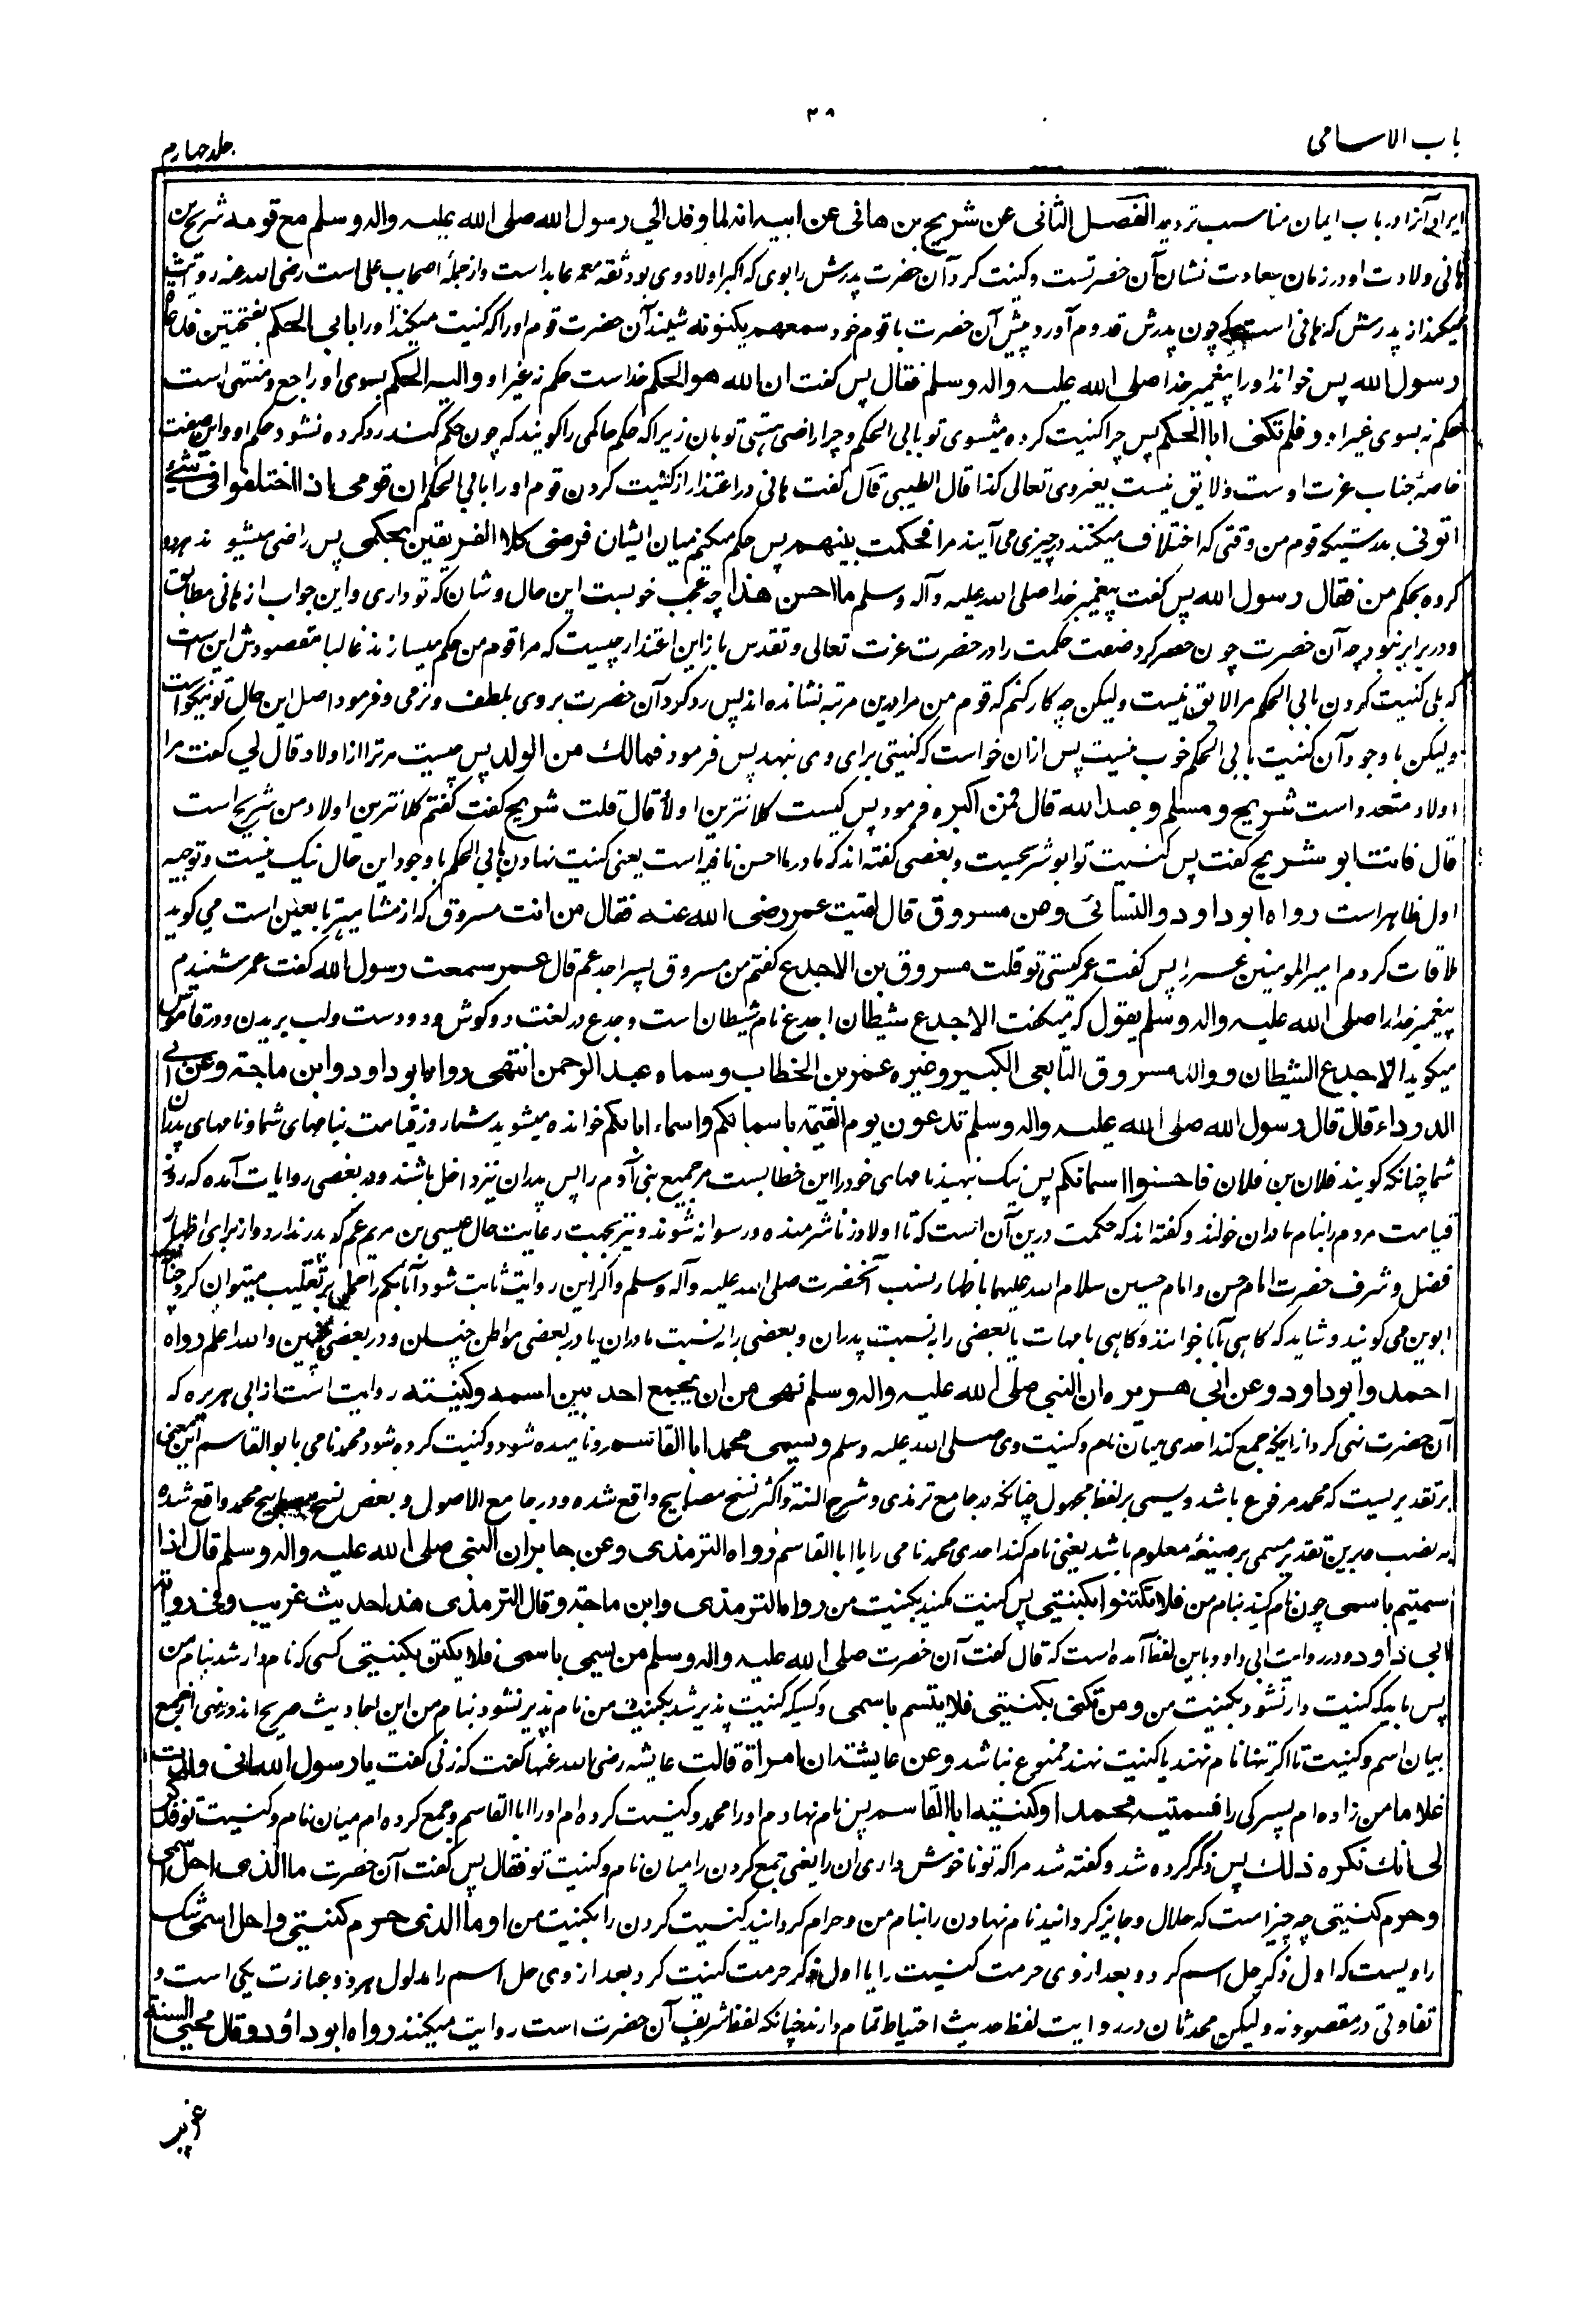 باب الاسامی
۳۸
جلد چهارم
ایرای آنرا در باب ایمان مناسب تر دید الفصل الثانی عن شریح بن هانی عن ابیه انه لما وفد الی رسول الله صلی الله علیه واله وسلم مع قومه شریح بن
هانی ولادت او در زمان سعادت نشان آن حضرتست وکنیت کرد آن حضرت پدرش را بوی که اکبر اولاد وی بود ثقه معمر عابد است و از جمله اصحاب علی است رضی الله عنه روایت
میکند از پدرش که هانی است که چون پدرش قدوم آورد پیش آن حضرت با قوم خود سمعهم یکنونه شنید آن حضرت قوم او را که کنیت میکنند او را بابی الحکم بفتحتین فدعاه
رسول الله پس خواند او را پیغمبر خدا صلی الله علیه واله وسلم فقال پس گفت ان الله هو الحکم خداست حکم نه غیر او والیه الحکم بسوی او راجع و منتهی است
حکم نه بسوی غیر او فلم تکنی ابا الحکم پس چرا کنیت کرده میشوی تو بابی الحکم و چرا راضی هستی تو بان زیرا که حکم حاکمی را گویند که چون حکم کند رد کرده نشود حکم او و این صفت
خاصهٔ جناب عزت اوست و لایق نیست بغیر وی تعالی کذا قال الطیبی قال گفت هانی در اعتذار از کنیت کردن قوم او را بابی الحکم ان قومی اذا اختلفوا فی شیٔ
اتونی بدرستیکه قوم من وقتی که اختلاف میکنند در چیزی می آیند مرا فحکمت بینهم پس حکم میکنم میان ایشان فرضی کلا الفریقین بحکمی پس راضی میشوند هر دو
گروه بحکم من فقال رسول الله پس گفت پیغمبر خدا صلی الله علیه وآله وسلم ما احسن هذا چه عجب خوبست این حال و شان که تو داری و این جواب از هانی مطابق
و در برابر نبود چه آن حضرت چون حصر کرد صفت حکمت را در حضرت عزت تعالی وتقدس باز این اعتذار چیست که مرا قوم من حکم میسازند غالبا مقصودش این است
که بلی کنیت کردن بابی الحکم مرا لایق نیست ولیکن چه کار کنم که قوم من مرا بدین مرتبه نشانده اند پس رد کرد آن حضرت بر وی بلطف ونرمی وفرمود اصل این حال تو نیکو است
ولیکن با وجود آن کنیت بابی الحکم خوب نیست پس ازان خواست که کنیتی برای وی بنهد پس فرمود فمالک من الولد پس چیست مر ترا از اولاد قال لی گفت مرا
اولاد متعدد است شریح و مسلم و عبدالله قال فمن اکبرهم فرمود پس کیست کلانترین اولاد قال قلت شریح گفت گفتم کلانترین اولاد من شریح است
قال فانت ابو شریح گفت پس کنیت تو ابو شریحست وبعضی گفته اند که ما در ما احسن نافیه است یعنی کنیت نهادن بابی الحکم با وجود این حال نیک نیست وتوجیه
اول ظاهر است رواه ابو داود والنسائی وعن مسروق قال لقیت عمر رضی الله عنه فقال من انت مسروق که از مشاهیر تابعین است می گوید
ملاقات کردم امیر المومنین عمر را پس گفت عمر کیستی تو قلت مسروق بن الاجدع گفتم من مسروق پسر اجدعم قال عمر سمعت رسول الله گفت عمر شنیدم
پیغمبر خدا را صلی الله علیه واله وسلم یقول که میگفت الاجدع شیطان اجدع نام شیطان است وجدع در لغت دو گوش و دو دست ولب بریدن ودر قاموس
میگوید الاجدع الشیطان ووالد مسروق التابعی الکبیر وغیره عمر بن الخطاب وسماه عبد الرحمن انتهی رواه ابو داود وابن ماجة وعن ابی
الدرداء قال قال رسول الله صلی الله علیه واله وسلم تدعون یوم القیمة باسمائکم واسماء ابائکم خوانده میشوید شما روز قیامت بنامهای شما و نامهای پدران
شما چنانکه گویند فلان بن فلان فاحسنوا اسمائکم پس نیک بنهید نامهای خود را این خطابست مر جمیع بنی آدم را پس پدران نیز داخل باشند ودر بعضی روایات آمده که روز
قیامت مردم را بنام مادران خوانند وگفته اند که حکمت درین آن است که تا اولاد زنا شرمنده ورسوا نه شوند ونیز بجهت رعایت حال عیسی بن مریم عم که پدر ندارد و از برای اظهار
فضل وشرف حضرت امام حسن وامام حسین سلام الله علیهما باظهار نسب آنحضرت صلی الله علیه وآله وسلم واگر این روایت ثابت شود آبائکم را حمل بر تغلیب میتوان کرد چنانکه
ابوین می گویند وشاید که گاهی بآبا خوانند وگاهی بامهات یا بعضی را به نسبت پدران وبعضی را به نسبت مادران یا در بعضی مواطن چنان ودر بعضی چنین والله اعلم رواه
احمد وابو داود وعن ابی هریره ان النبی صلی الله علیه واله وسلم نهی من ان یجمع احد بین اسمه وکنیته روایت است از ابی هریره که
آن حضرت نهی کرد از اینکه جمع کند احدی میان نام وکنیت وی صلی الله علیه وسلم ویسمی محمد ابا القاسم ونامیده شود وکنیت کرده شود محمد نامی بابو القاسم این معنی
بر تقدیریست که محمد مرفوع باشد ویسمی بر لفظ مجهول چنانکه در جامع ترمذی وشرح السنة واکثر نسخ مصابیح واقع شده ودر جامع الاصول وبعض نسخ مصابیح محمد واقع شده
به نصب و برین تقدیر یسمی بر صیغهٔ معلوم باشد یعنی نام کند احدی محمد نامی را یا ابا القاسم رواه الترمذی وعن جابر ان النبی صلی الله علیه واله وسلم قال اذا
سمیتم باسمی چون نام کنید بنام من فلا تکتنوا بکنیتی پس کنیت مکنید بکنیت من رواه الترمذی وابن ماجة وقال الترمذی هذا حدیث غریب وفی روایة
ابی داود ودر روایت ابی داود باین لفظ آمده است که قال گفت آن حضرت صلی الله علیه واله وسلم من تسمی باسمی فلا یکتن بکنیتی کسی که نام دار شد بنام من
پس باید که کنیت دار نشود بکنیت من ومن تکنی بکنیتی فلا یتسم باسمی وکسیکه کنیت پذیر شد بکنیت من نام پذیر نشود بنام من این احادیث صریح اند در نهی از جمع
میان اسم وکنیت تا اگر تنها نام نهند یا کنیت نهند ممنوع نباشد وعن عایشة ان امراة قالت عایشه رضی الله عنها گفت که زنی گفت یا رسول الله انی ولدت
غلاما من زاده ام پسرکی را فسمیته محمدا وکنیته ابا القاسم پس نام نهادم او را محمد وکنیت کرده ام او را ابا القاسم وجمع کرده ام میان نام وکنیت تو فذکر
لی انک تکره ذلک پس ذکر کرده شد وگفته شد مرا که تو ناخوش داری ان را یعنی جمع کردن را میان نام وکنیت تو فقال پس گفت آن حضرت ما الذی احل اسمی
وحرم کنیتی چه چیز است که حلال وجایز گردانید نام نهادن را بنام من وحرام گردانید کنیت کردن را بکنیت من او ما الذی حرم کنیتی واحل اسمی شک
راویست که اول ذکر حل اسم کرد وبعد از وی حرمت کنیت را یا اول ذکر حرمت کنیت کرد بعد از وی حل اسم را مدلول هر دو عبارت یکی است و
تفاوتی در مقصود نه ولیکن محدثان در روایت لفظ حدیث احتیاط تمام دارند چنانکه لفظ شریف آن حضرت است روایت میکنند رواه ابو داؤد وقال محیی السنة
غریب